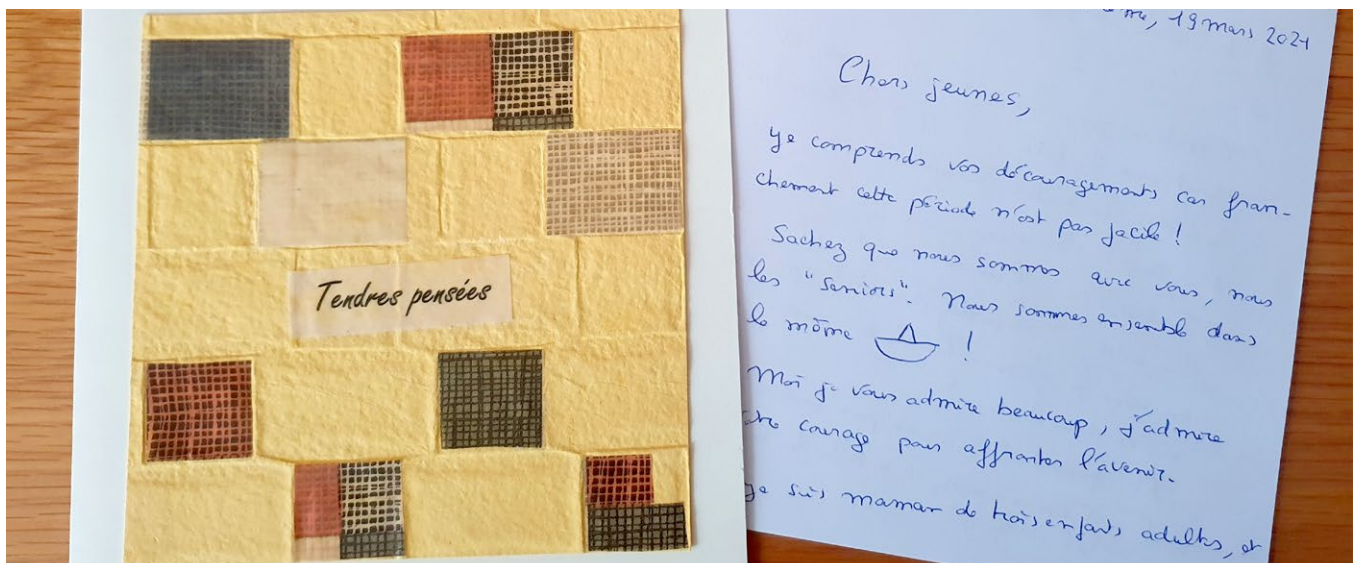 Tendres pensées
, 19 mars 2021
Chers jeunes,
Je comprends vos découragements car fran-
chement cette période n'est pas facile !
Sachez que nous sommes avec vous, nous
les "seniors". Nous sommes ensemble dans
le même !
Moi je vous admire beaucoup, j'admire
courage pour affronter l'avenir.
Je suis maman de trois enfants adultes, et